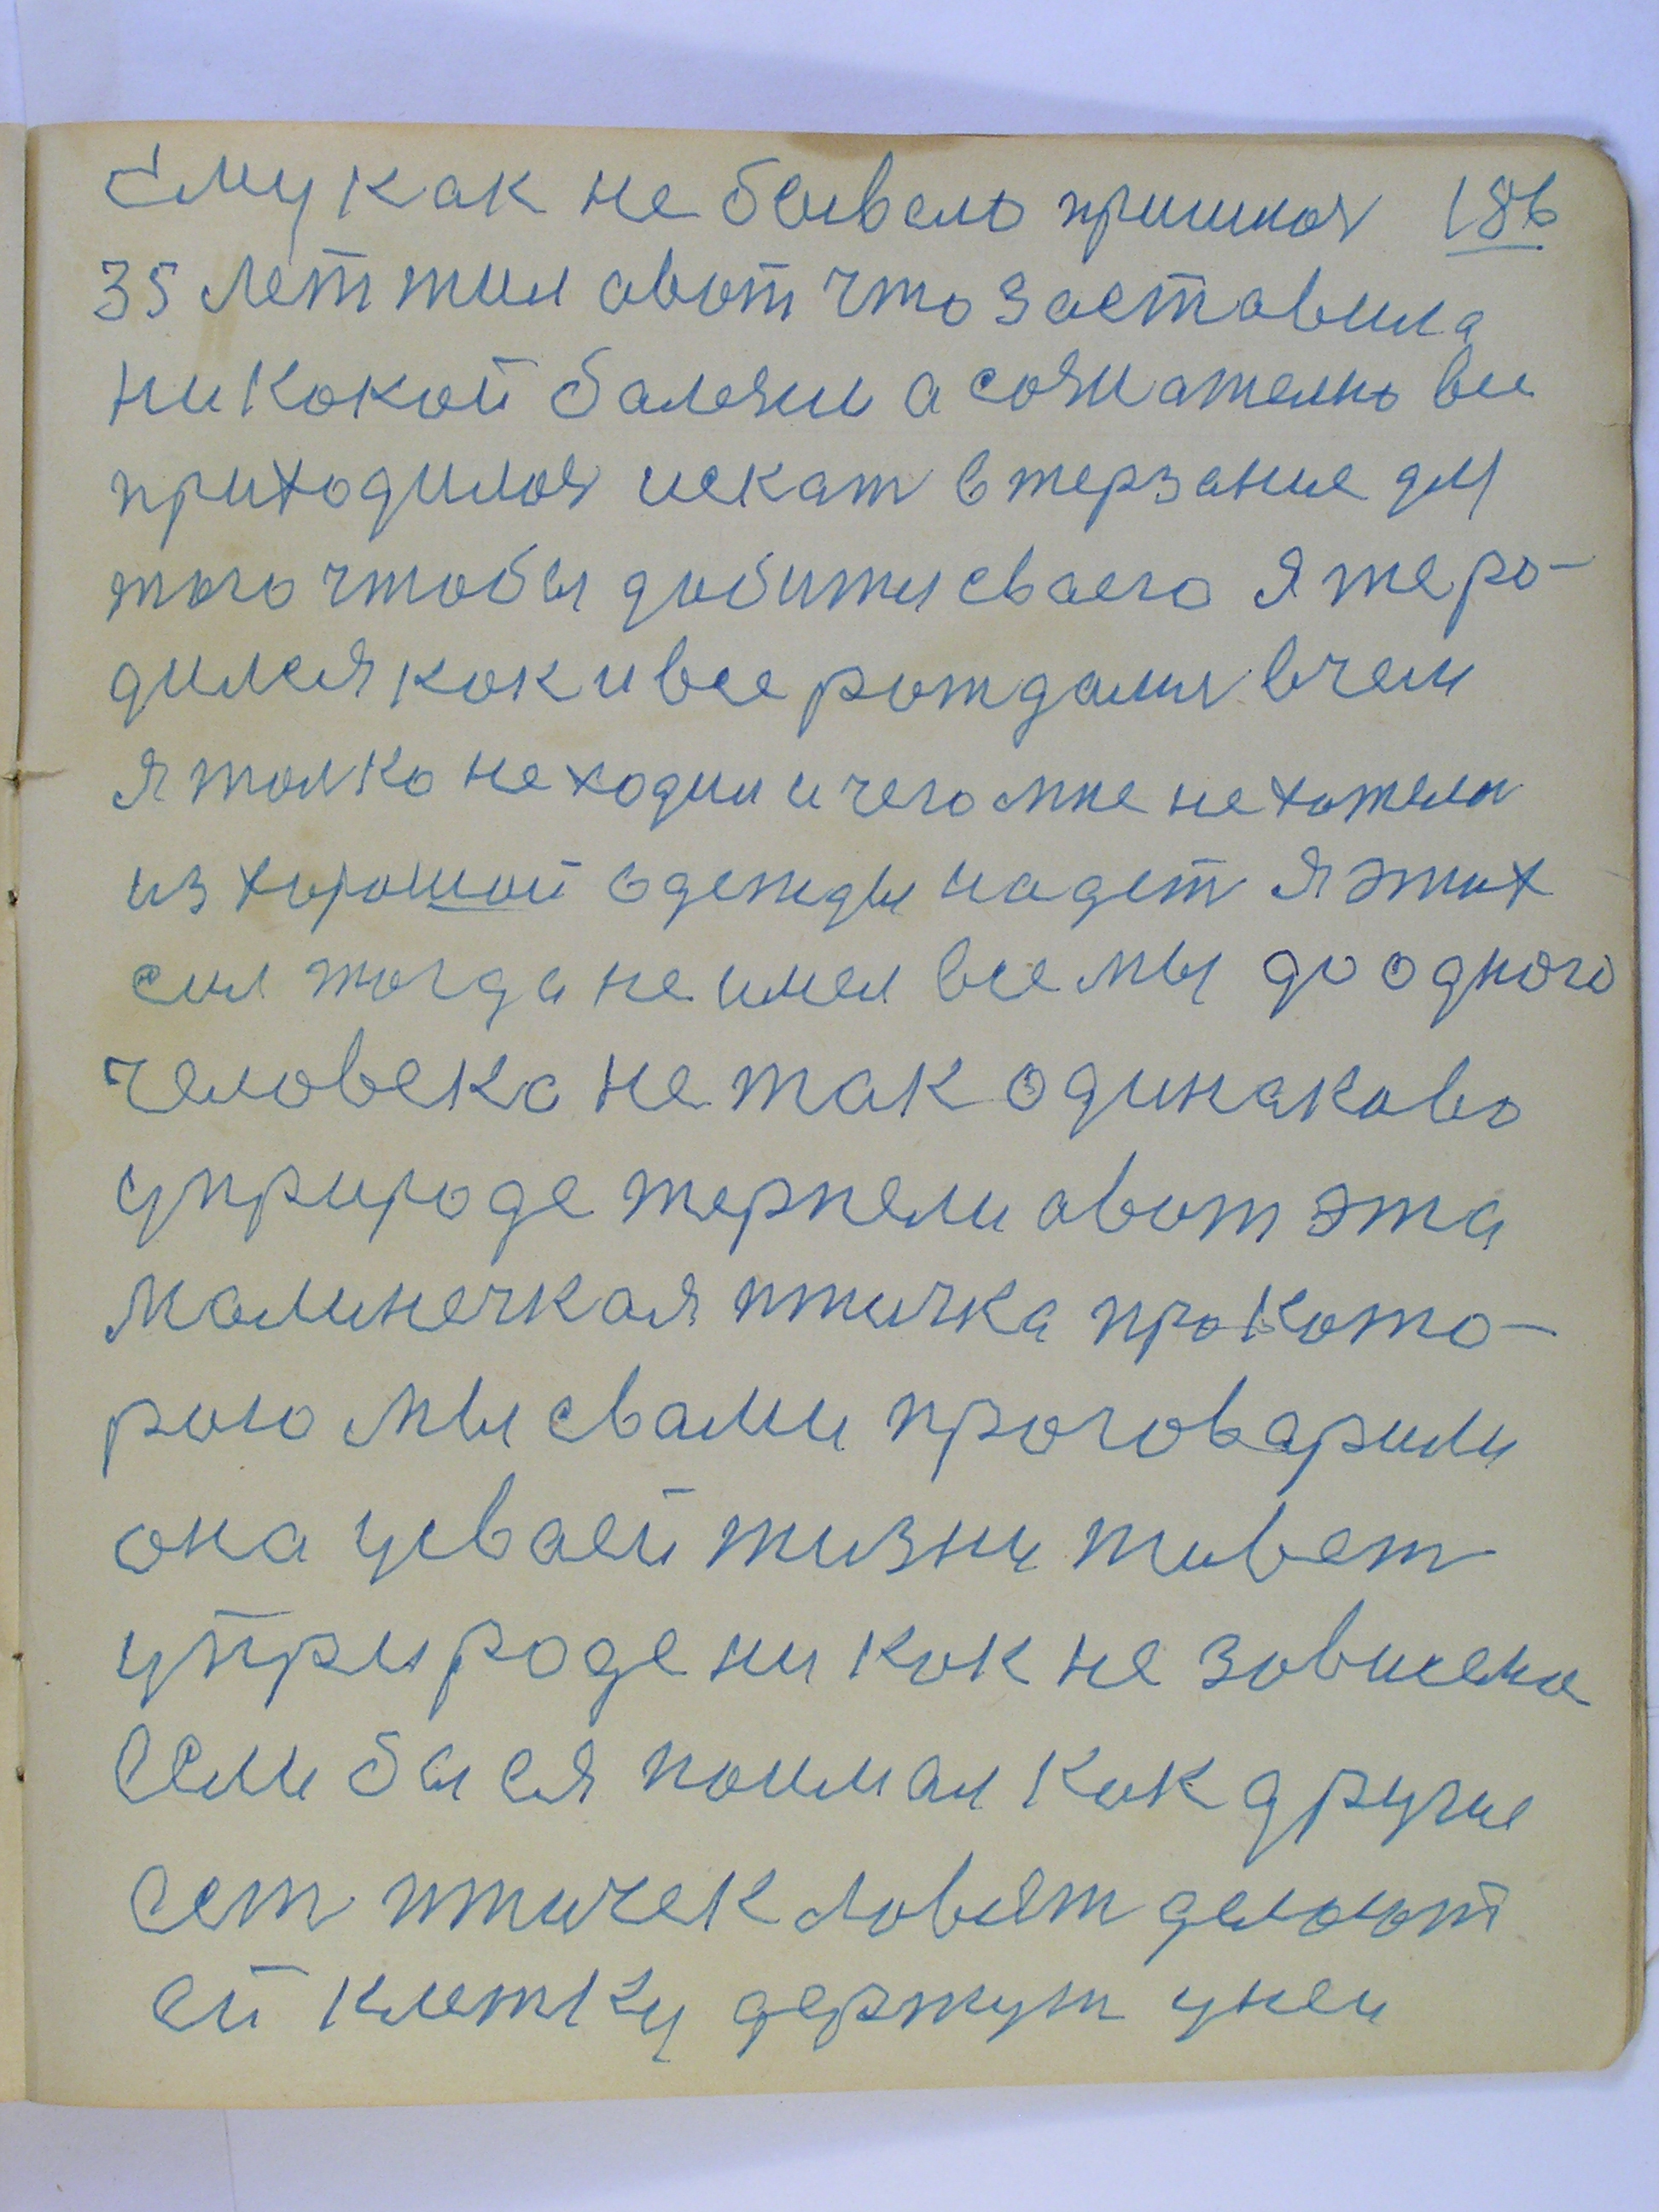 Ему как не бывало пришлоя 186
35 лет жил авот что заставила
ни какой балезни а сознателно вы
приходилоя искат в терзание для
того чтобы добится сваего Я же ро-
дился как и все рождались в чем
я толко не ходил и чего мне не хотела
из хорошой одежды надет Я этих
сил тогда не имел все мы до одного
человека не так одинаково
у природе терпели авот эта
малинечкая птичка про кото-
рою мы свами проговарили
она у сваей жизни живет
у природе ни как не зависема
Если бы ея поимал как другие
сет птичек ловят делоют
ей клетку держут у неи